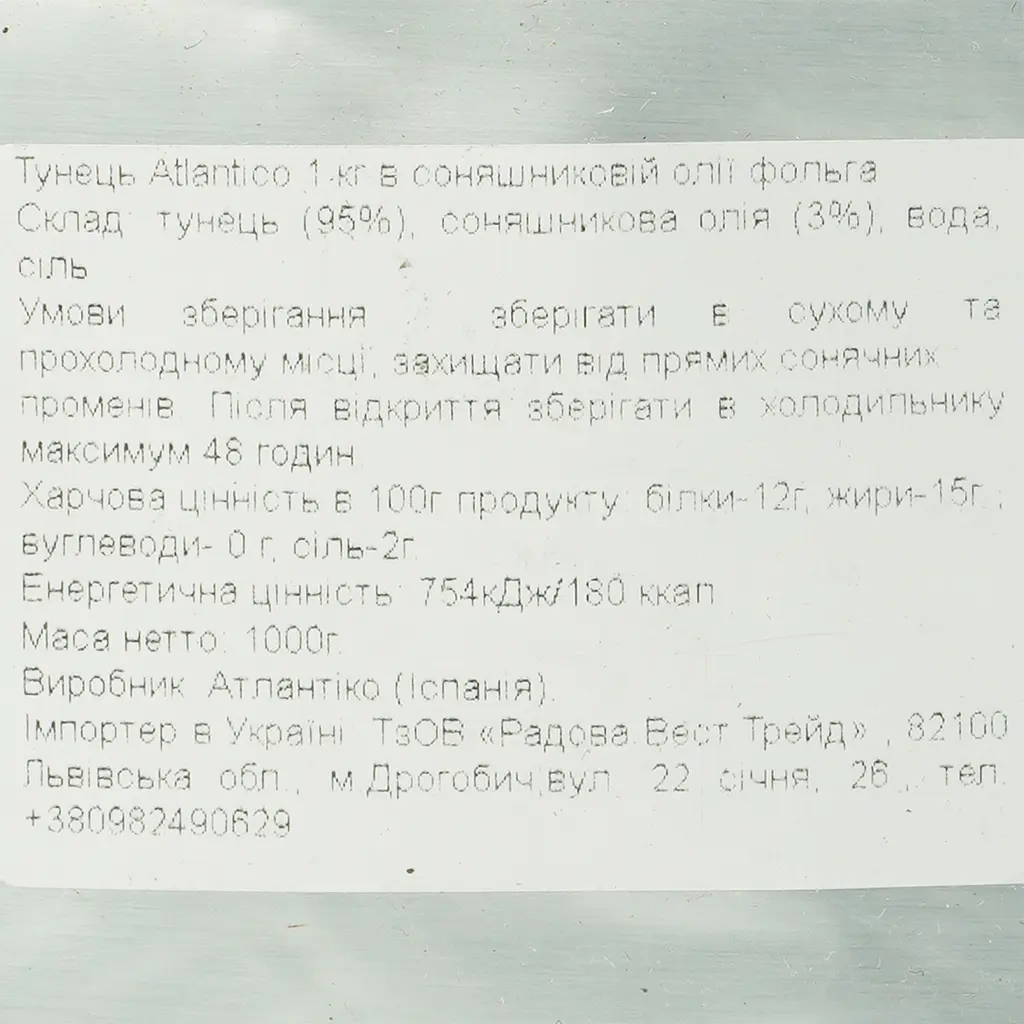 Тунець Atlantico 1 кг в соняшниковій олії фольга
Склад: тунець (95%), соняшникова олія (3%), вода,
сіль
Умови зберігання : зберігати в сухому та
прохолодному місці, захищати від прямих сонячних
променів. Після відкриття зберігати в холодильнику
максимум 48 годин
Харчова цінність в 100г продукту: білки-12г, жири-15г.,
вуглеводи- 0 г, сіль-2г.
Енергетична цінність: 754кДж/180 ккал
Маса нетто: 1000г.
Виробник: Атлантіко (Іспанія).
Імпортер в Україні: ТзОВ «Радова Вест Трейд» , 82100
Львівська обл., м.Дрогобич,вул. 22 січня, 26 , тел.
+380982490629